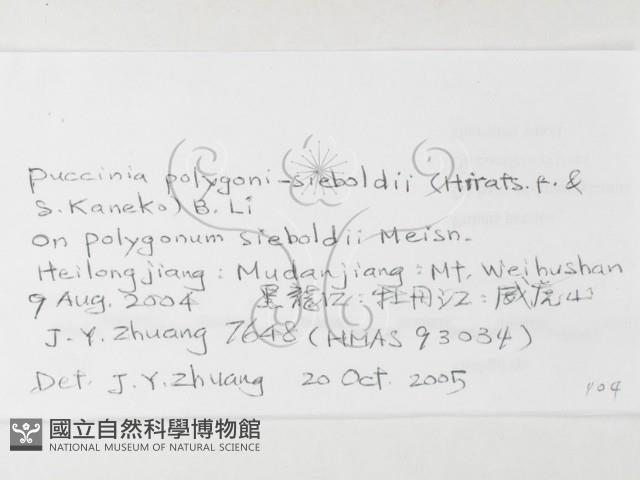 Puccinia polygoni-sieboldii (Hirats. f. &
S. Kaneko) B. Li
On polygonum sieboldii Meisn.
Heilongjiang : Mudanjiang : Mt. Weihushan
9 Aug. 2004 黑龍江 : 牡丹江 : 威虎山
J. Y. Zhuang 7648 (HMAS 93034)
Det. J. Y. Zhuang 20 Oct. 2005
404
國立自然科學博物館
NATIONAL MUSEUM OF NATURAL SCIENCE